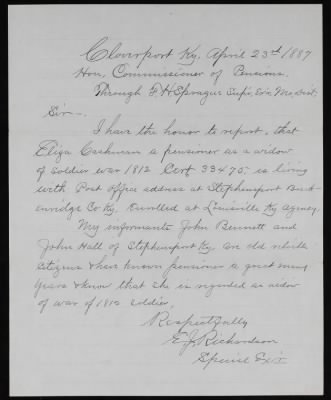 Cloverport Ky. April 23rd 1887
Hon. Commissioner of Pensions.
Through F. H Sprague Supr. Exr. Div.
Sir -.
I have the honor to report, that
Eliza Cashman a pensioner as a widow
of soldier war 1812 Cert 33475. is living
with Post Office address at Stephensport Breck-
enridge Co Ky. Enrolled at Louisville Ky Agency.
My informants John Bennett and
John Hall of Stephensport Ky are old reliable
citizens & have known pensioner a great many
years & know that she is regarded as widow
of war of 1812 soldier,
Respectfully
E. J. Richardson
Special Ex'r